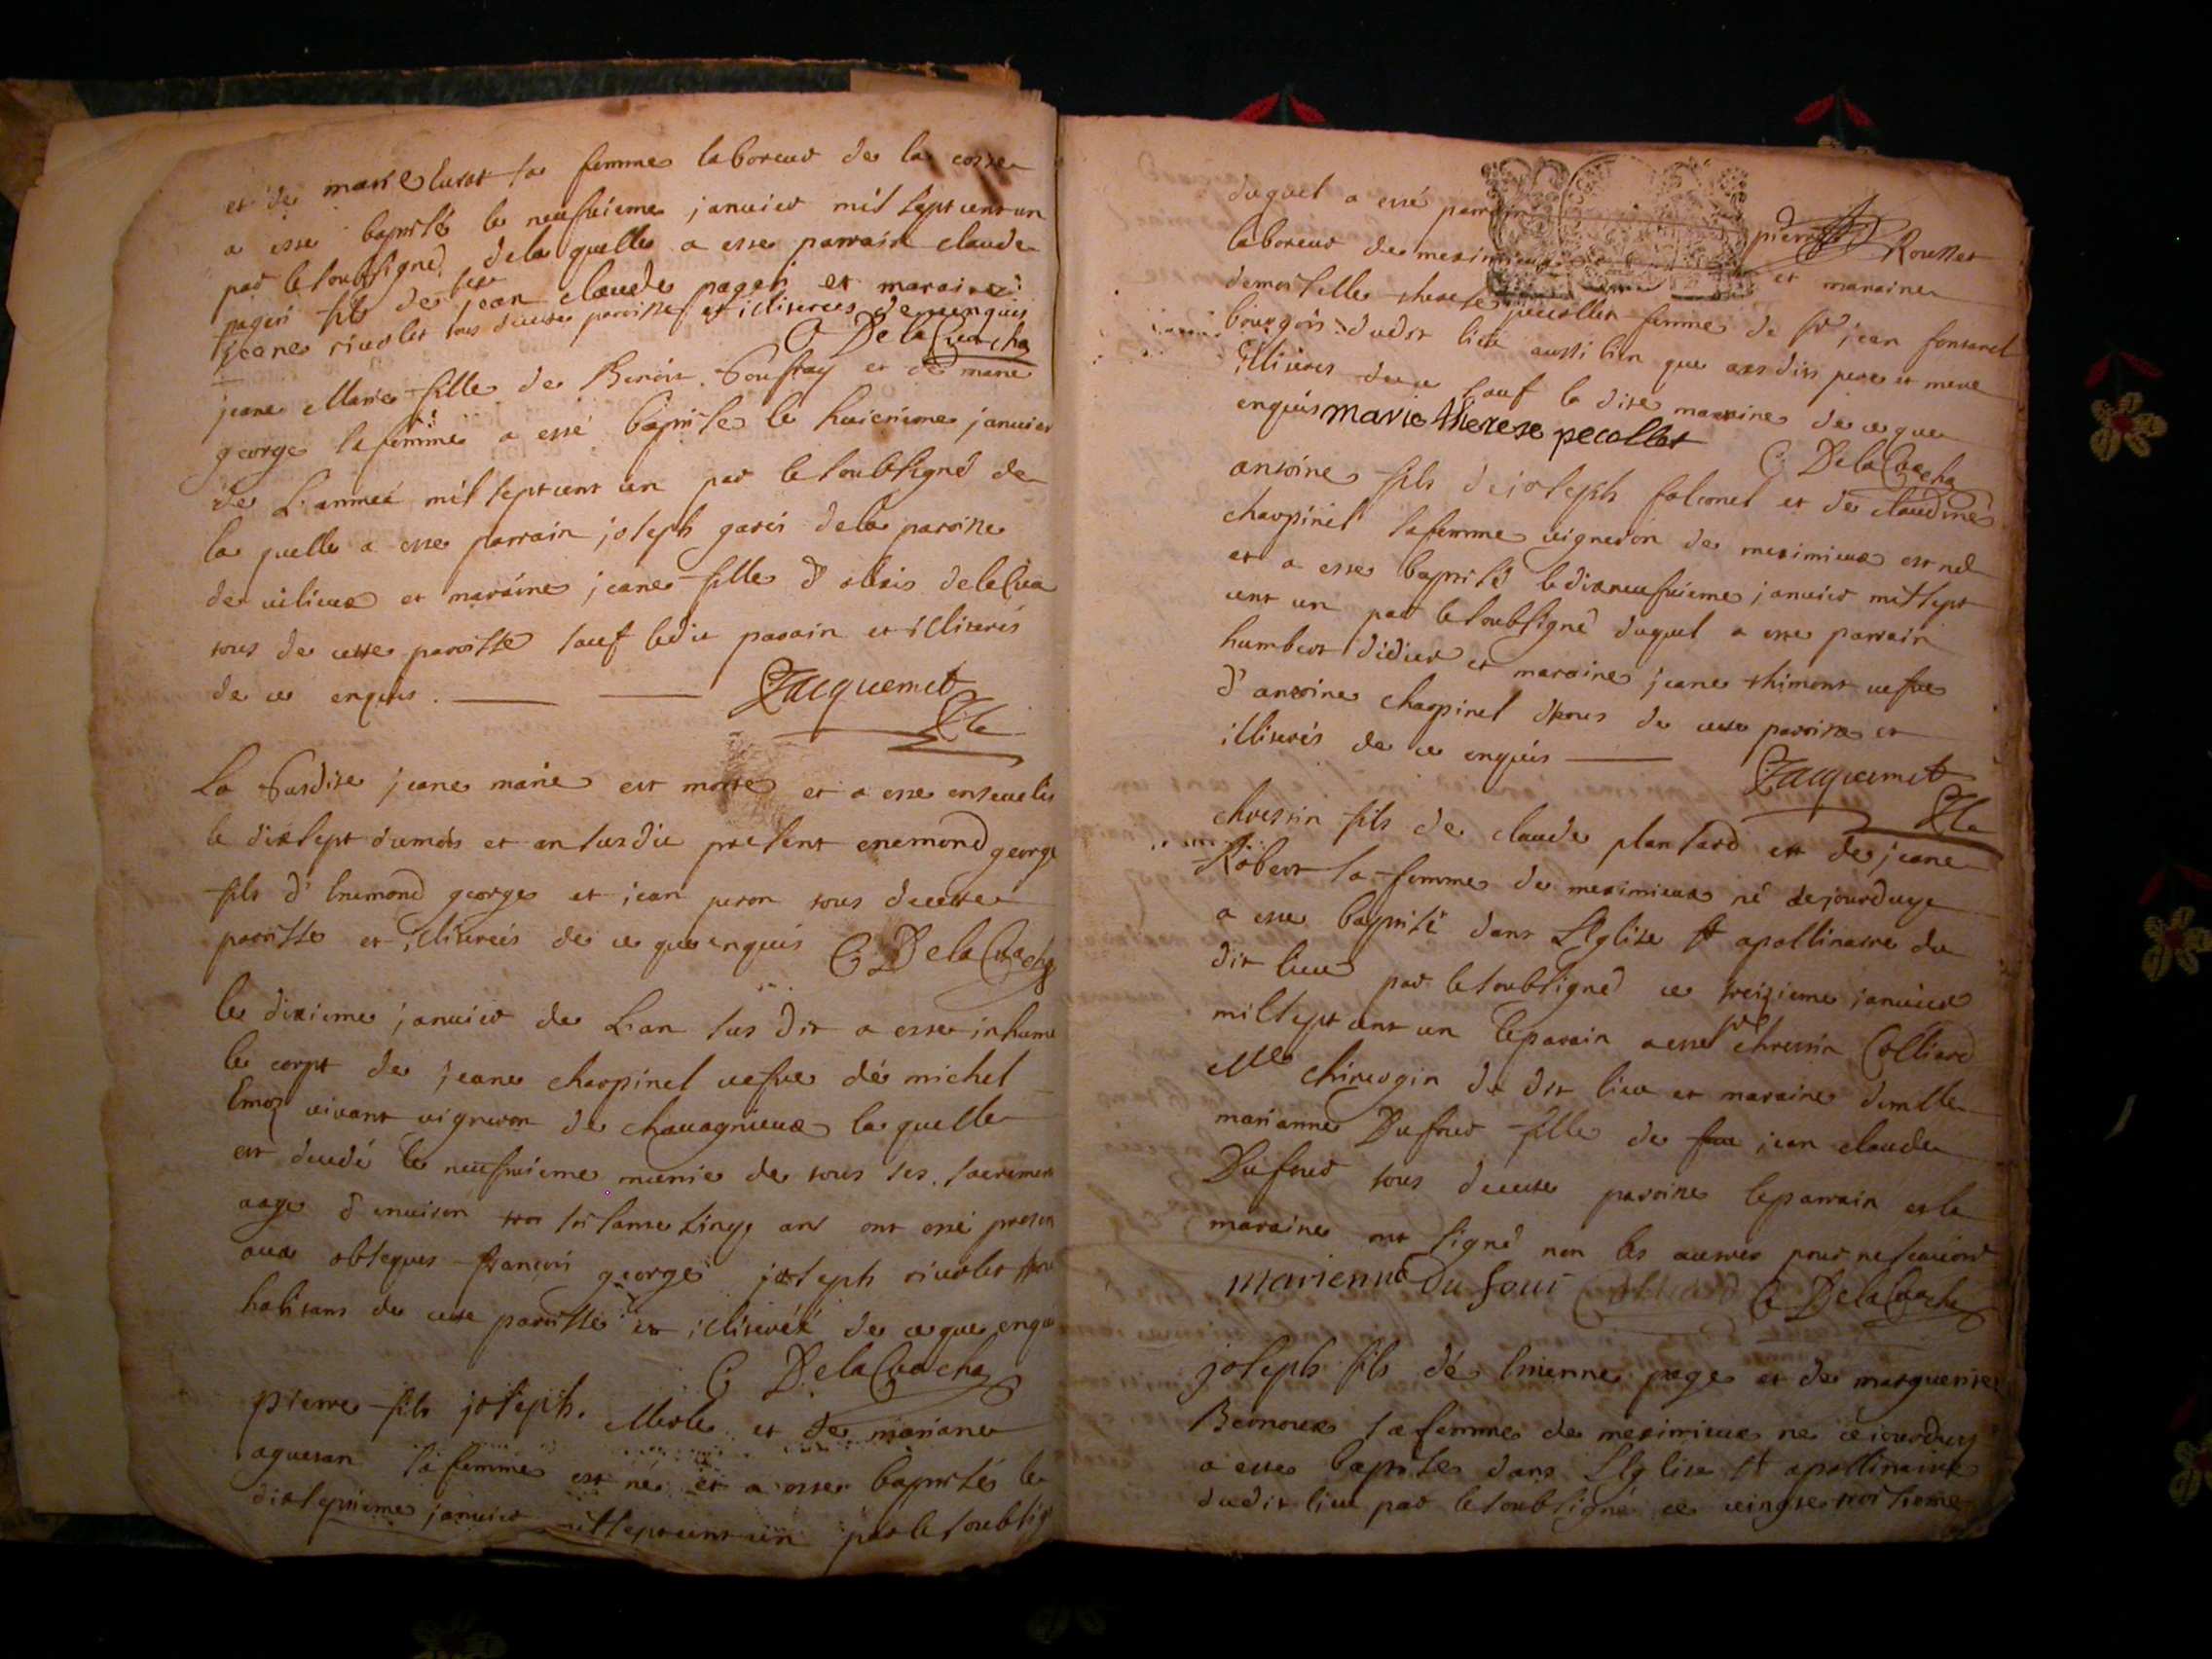 et de marie luvat sa femme laboreur de la coste
a esse baptisée le neufvieme janvier mil sept cent un
par le soubsigné de la quelle a esse parrain claude
pageri fils de feu jean claude pageri et maraine
jeane rivolet tous de cette paroisse et illiterées de ce enquis
C DelaCroche
jeane Marie fille de Benoit et de marie
george sa femme a essé baptisée le huictieme janvier
de L'année mil sept cent un par le soubsigné de
la quelle a esse parrain joseph de la paroisse
de vilieux et maraine jeane fille d'
tous de cette paroisse sauf ledit parain et illiterés
de ce enquis. Jacquemet
La susdite jeane marie est morte et a esse ensevelie
le dixsept du mois et an susdit présent enemond george
fils d'Enemond george et jean peron tous de cette
paroisse et illiterés de ce que enquis C DelaCroche
le dixieme janvier de L'an sus dit a esse inhumé
le corps de jeane charpinel vefve de michel
vivant vigneron de chavagnieux la quelle
est decedé le neufvieme munie de tous ses sacrements
aagé d'environ soisante cinq ans ont essé present
aux obseques françois george joseph rivolet tous
habitans de cette paroisse et illiteréz de ce que enquis
C DelaCroche
pierre fils joseph Merle et de mariane
aguetan sa femme est né et a esse baptisés le
dixseptieme janvier mil sept cent un par le soubsig
duquel a essé parrain pierre Rousset
laboreur de meximieux et maraine
demoiselle therese pecollet femme de sr jean fontanel
bourgois dudit lieu aussi bien que pere et mere
illiterés sauf la dite maraine de ce que
enquis marie therese pecollet
C DelaCroche
antoine fils de joseph falconet et de claudine
charpinel sa femme vigneron de meximieux est né
et a esse baptisé le dixneufvieme janvier mil sept
cent un par le soubsigné duquel a esse parrain
humbert didier et maraine jeane thimont vefve
d'antoine charpinel tous de cette paroisse et
illiterés de ce enquis Jacquemet
chrestin fils de claude plantard et de jeane
Robert sa femme de meximieux né
a esse baptisé dans L'Eglise St apollinaire du
dit lieu par le soubsigné ce treizieme janvier
mil sept cent un le parain a esse sr chrestin Colliard
Me chirurgin du dit lieu et maraine demlle
marianne Dufour fille de feu jean claude
Dufour tous de cette paroisse le parrain et la
maraine ont signé non les autres pour ne scavoir
marienne du four Colliard C DelaCroche
joseph fils de page et de marguerite
Bernoux sa femme de meximieux né
a esse baptisé dans L'Eglise St apollinaire
dudit lieu par le soubsigné ce vingt troisieme